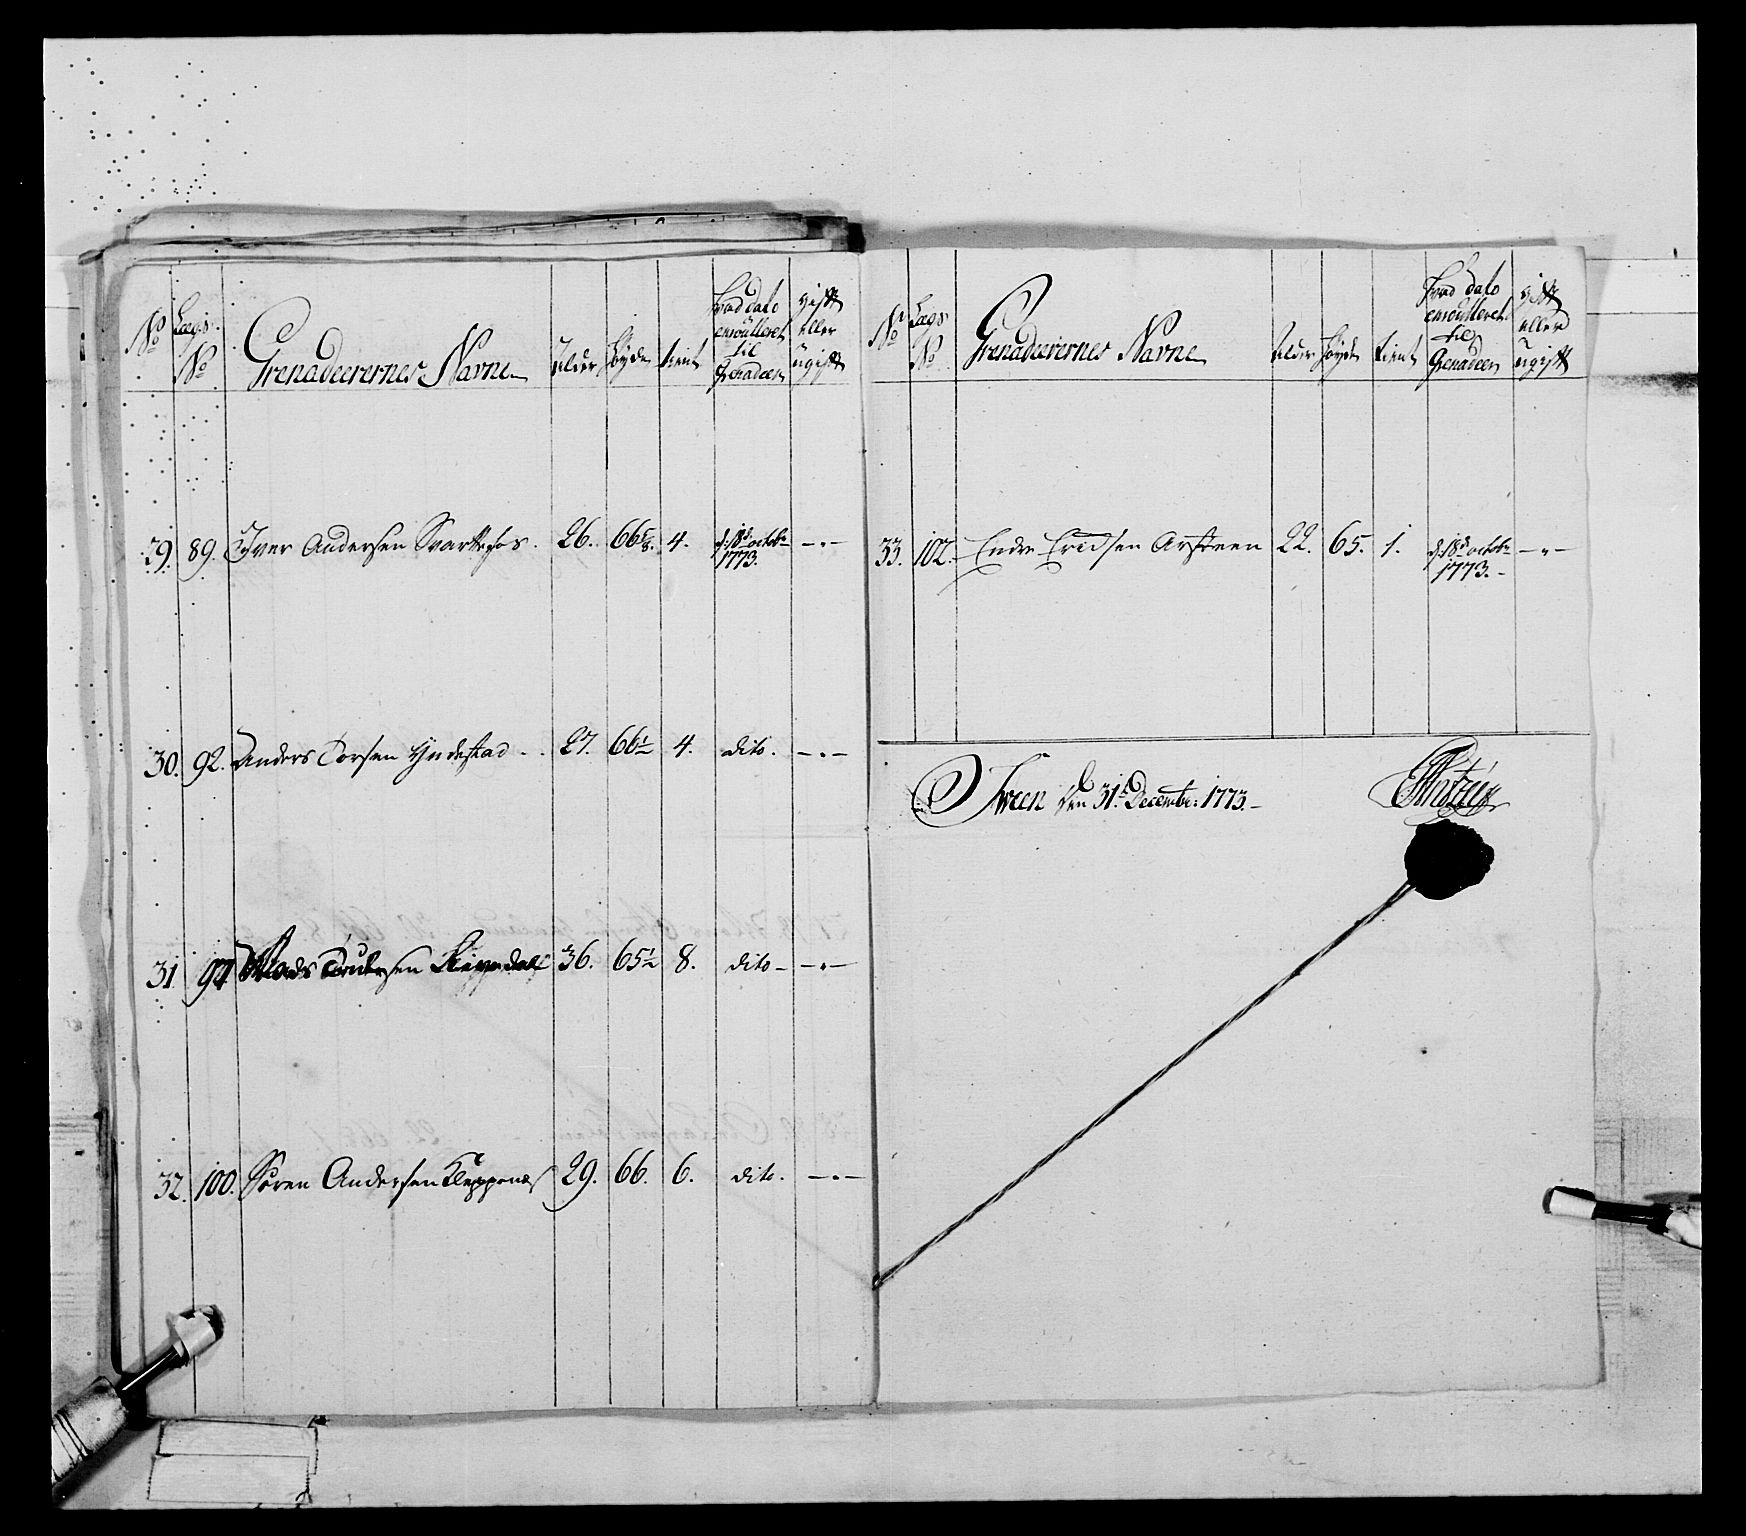 No
Lægs No
Grenadeerernes Navne
Alder
høyde
tient
hvad dato
enroulleret
til
Grenadeer
gift
eller
ugift
29. 89. Iver Andersen Svartefos. 26. 66 5/8. 4. d: 18d octobr 1773. -"-
30. 92. Anders Torsen Yndestad. 27. 66½ 4. dito. -"-
31 97 Mads 36. 65½ 8. dito -"-
32. 100. Søren Andersen Kleppenæs 29. 66. 6. dito. -"-
No
Lægs No
Grenadeerernes Navne
Alder
høyde
tient
hvad dato
enroulleret
til
Grenadeer
gift
eller
ugift
33. 102. Endre Ericksen Arsteen 22. 65. 1. d: 18d octobr 1773. -"-
den 31t Decembr: 1773.